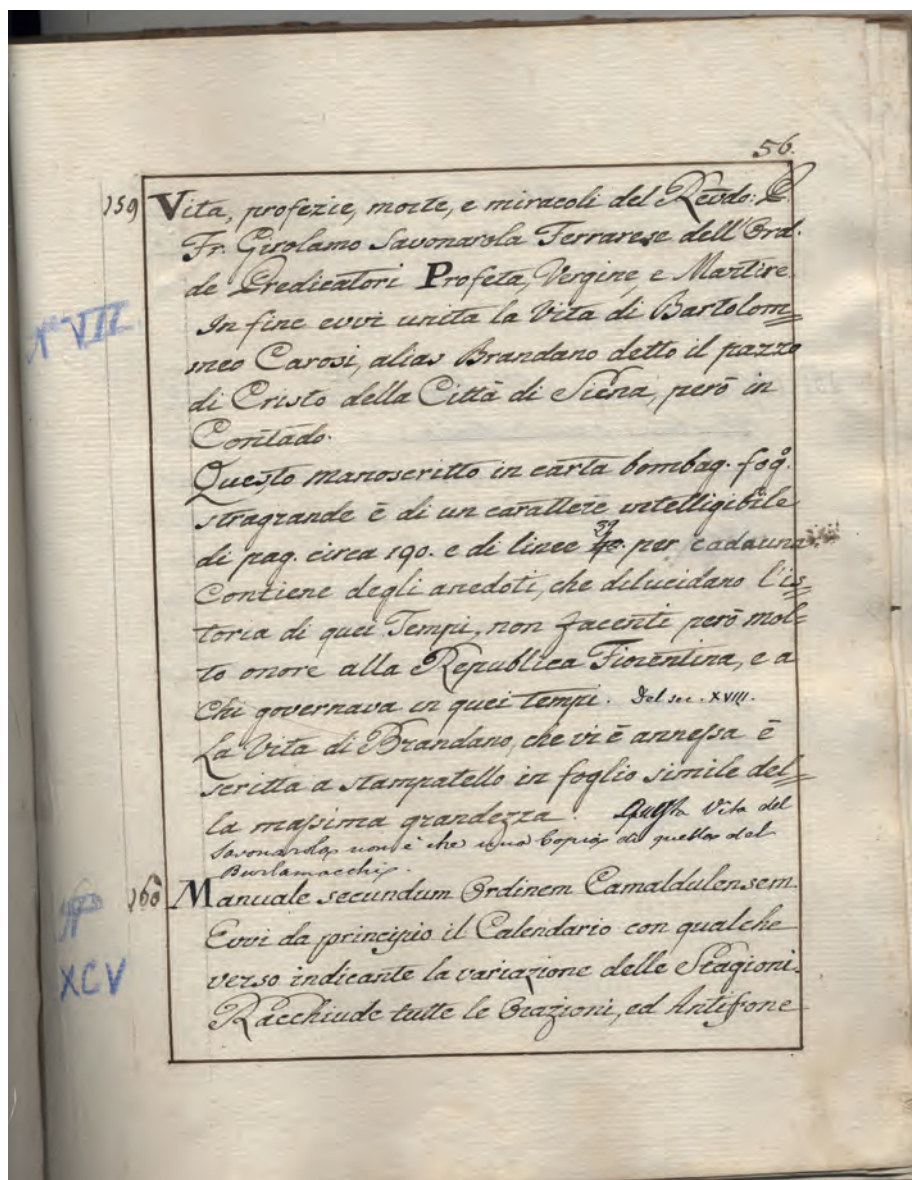 56.
159 Vita, profezie, morte, e miracoli del Revdo: P.
Fr. Girolamo Savonarola Ferrarese dell'Ord.
de Predicatori Profeta, Vergine, e Martire
In fine evvi unita la Vita di Bartolom=
N° VII
meo Carosi, alias Brandano detto il pazzo
di Cristo della Città di Siena, però in
Contado.
Questo manoscritto in carta bombag. fog.°
stragrande è di un carattere intelligibile
di pag. circa 190. e di linee 39 per cadauna.
Contiene degli anedoti, che dilucidano l'is=
toria di quei Tempi, non facenti però mol=
to onore alla Republica Fiorentina, e a
Chi governava in quei tempi. Del sec. XVIII.
La Vita di Brandano, che vi è annessa è
scritta a stampatello in foglio simile del=
la massima grandezza. Questa Vita del
Savonarola non è che una Copia di quella del
Burlamacchi.
160 Manuale secundum Ordinem Camaldulensem.
N°
Evvi da principio il Calendario con qualche
XCV
verso indicante la variazione delle Stagioni.
Racchiude tutte le Orazioni, ed Antifone